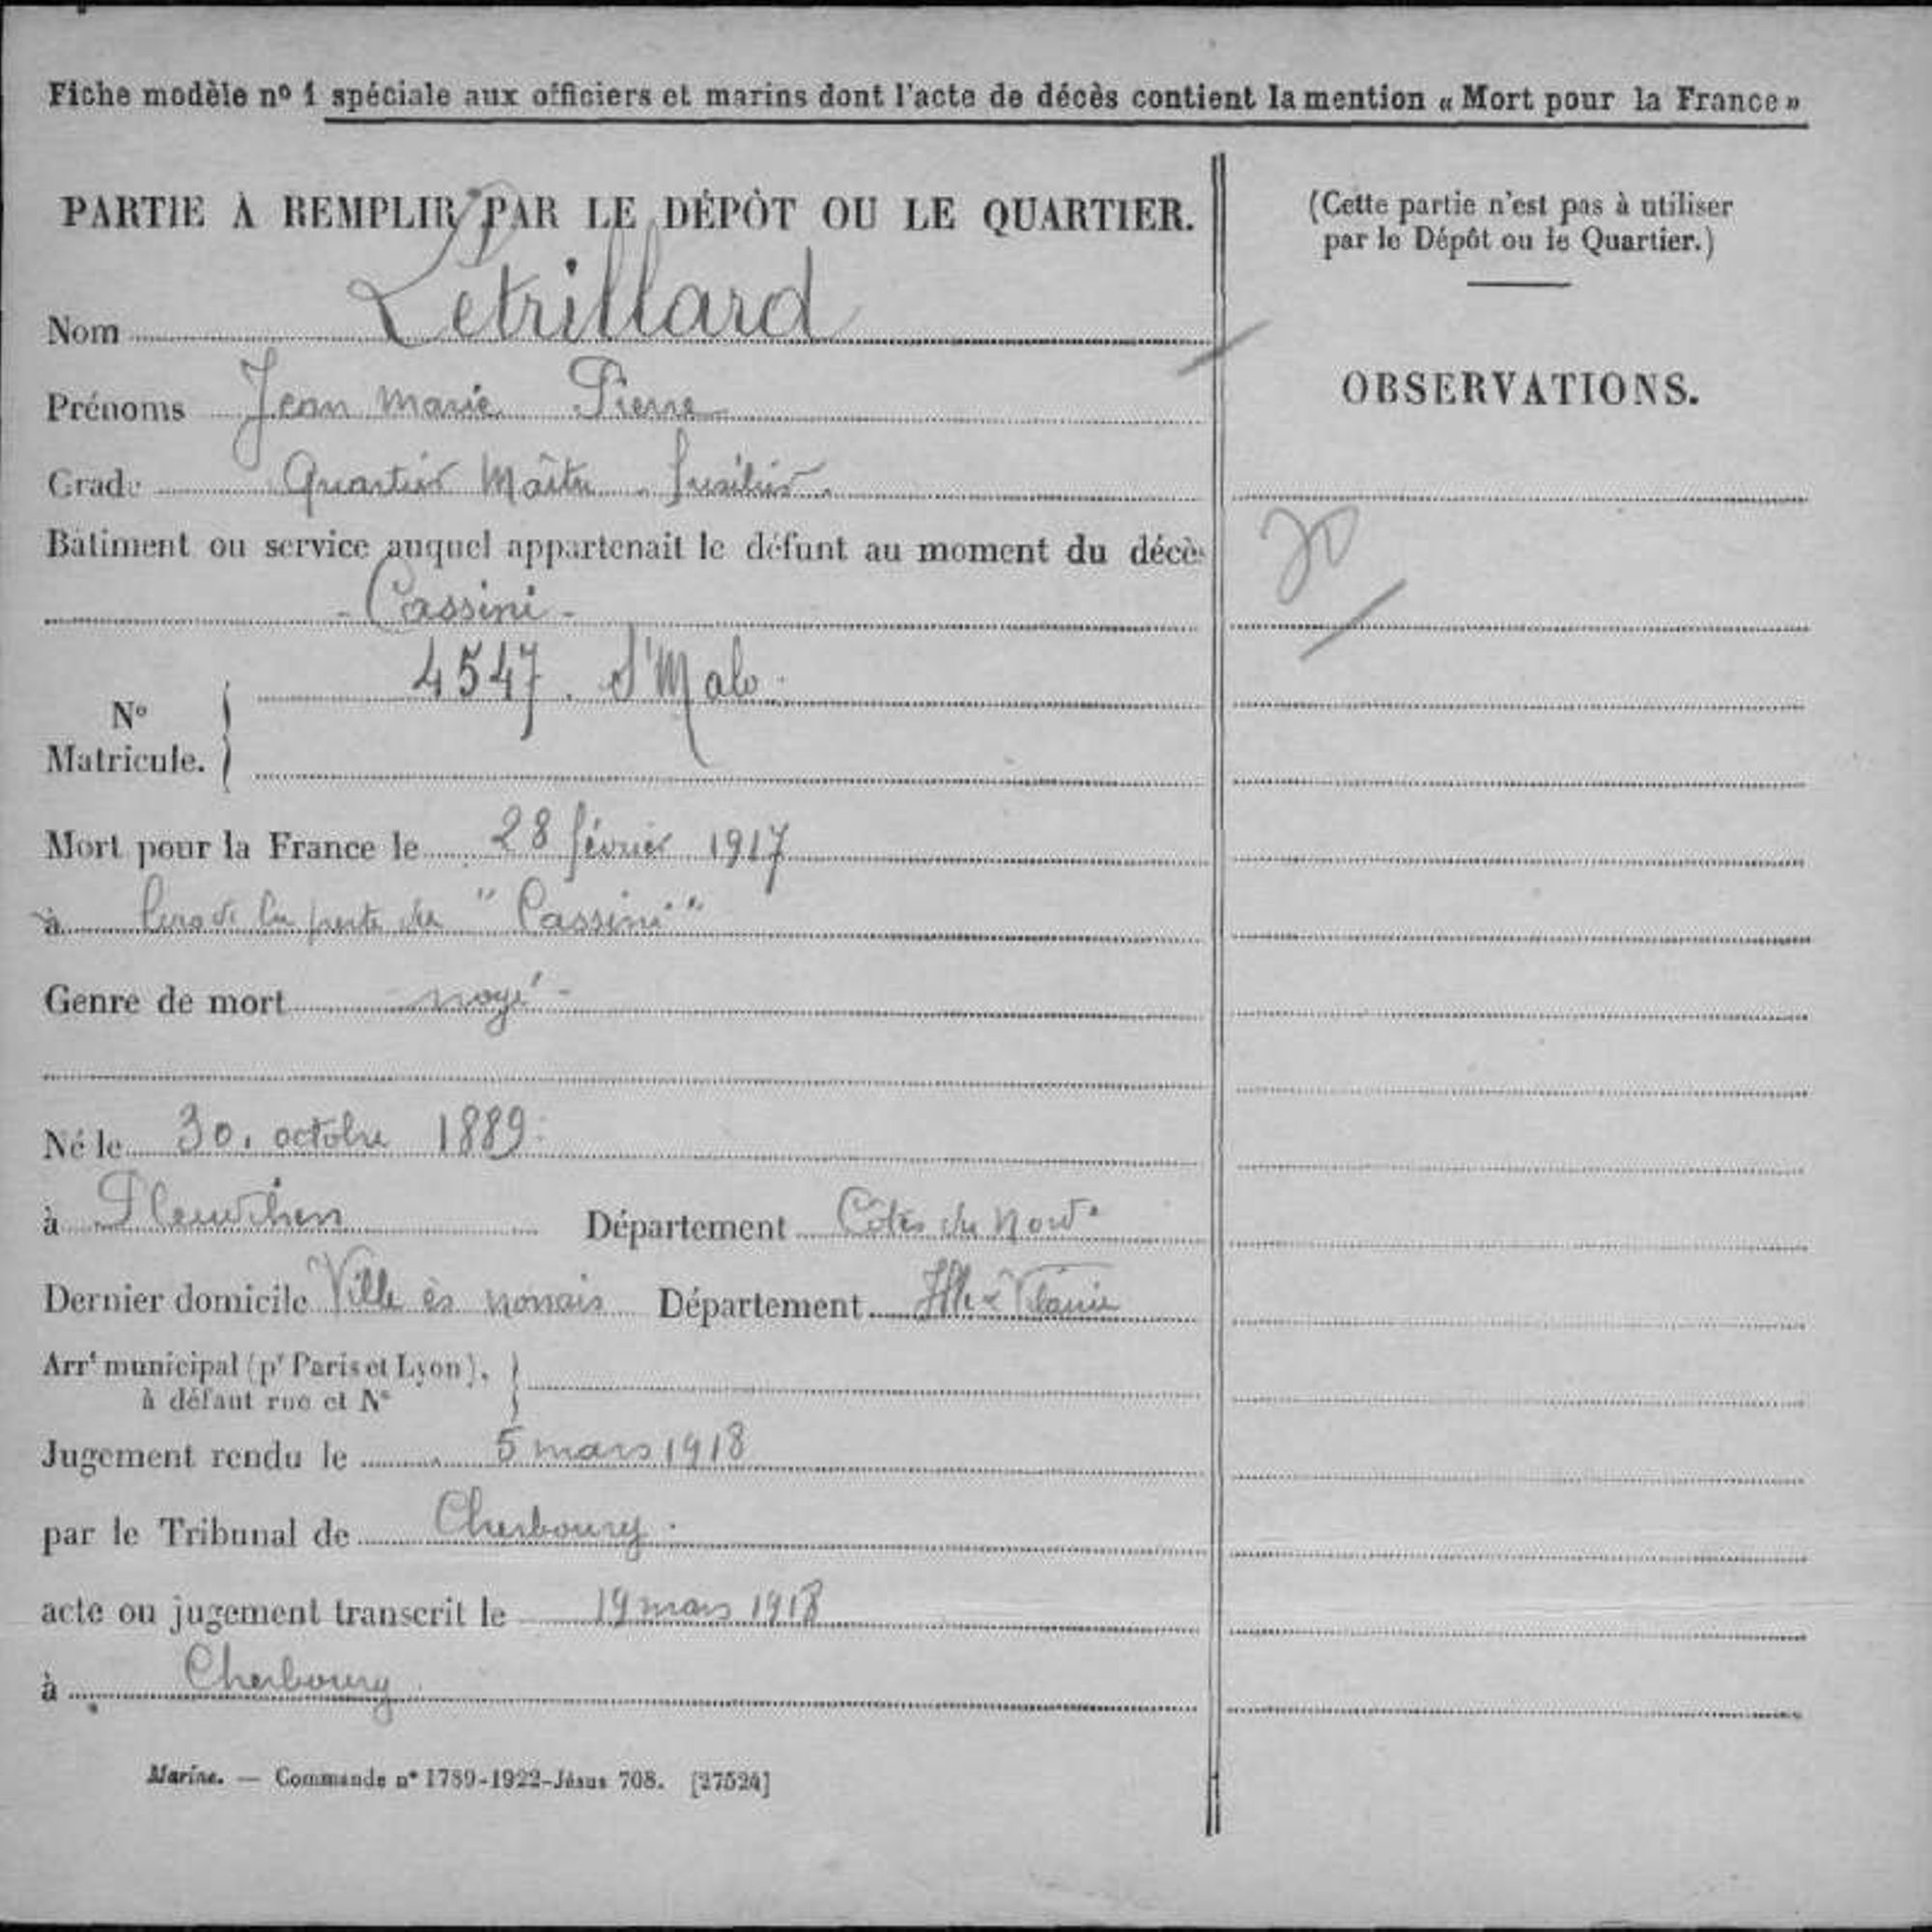 Fiche modèle nº 1 spéciale aux officiers et marins dont l'acte de décès contient la mention « Mort pour la France »
PARTIE À REMPLIR PAR LE DÉPÔT OU LE QUARTIER.
Nom Letrillard
Prénoms Jean Marie Pierre
Grade Quartier Maître fusilier
Bâtiment ou service auquel appartenait le défunt au moment du décès
- Cassini -
Nº Matricule. 4547. St Malo.
Mort pour la France le 28 février 1917
à lors de la perte du "Cassini"
Genre de mort noyé -
Né le 30. octobre 1889.
à Pleudihen Département Côtes du Nord.
Dernier domicile Ville ès nonais Département Ille & Vilaine
Arrt municipal (pr Paris et Lyon),
à défaut rue et Nº
Jugement rendu le 5 mars 1918
par le Tribunal de Cherbourg.
acte ou jugement transcrit le 19 mars 1918
à Cherbourg
Marine. — Commande nº 1789-1922-Jésus 708. [27524]
(Cette partie n'est pas à utiliser
par le Dépôt ou le Quartier.)
OBSERVATIONS.